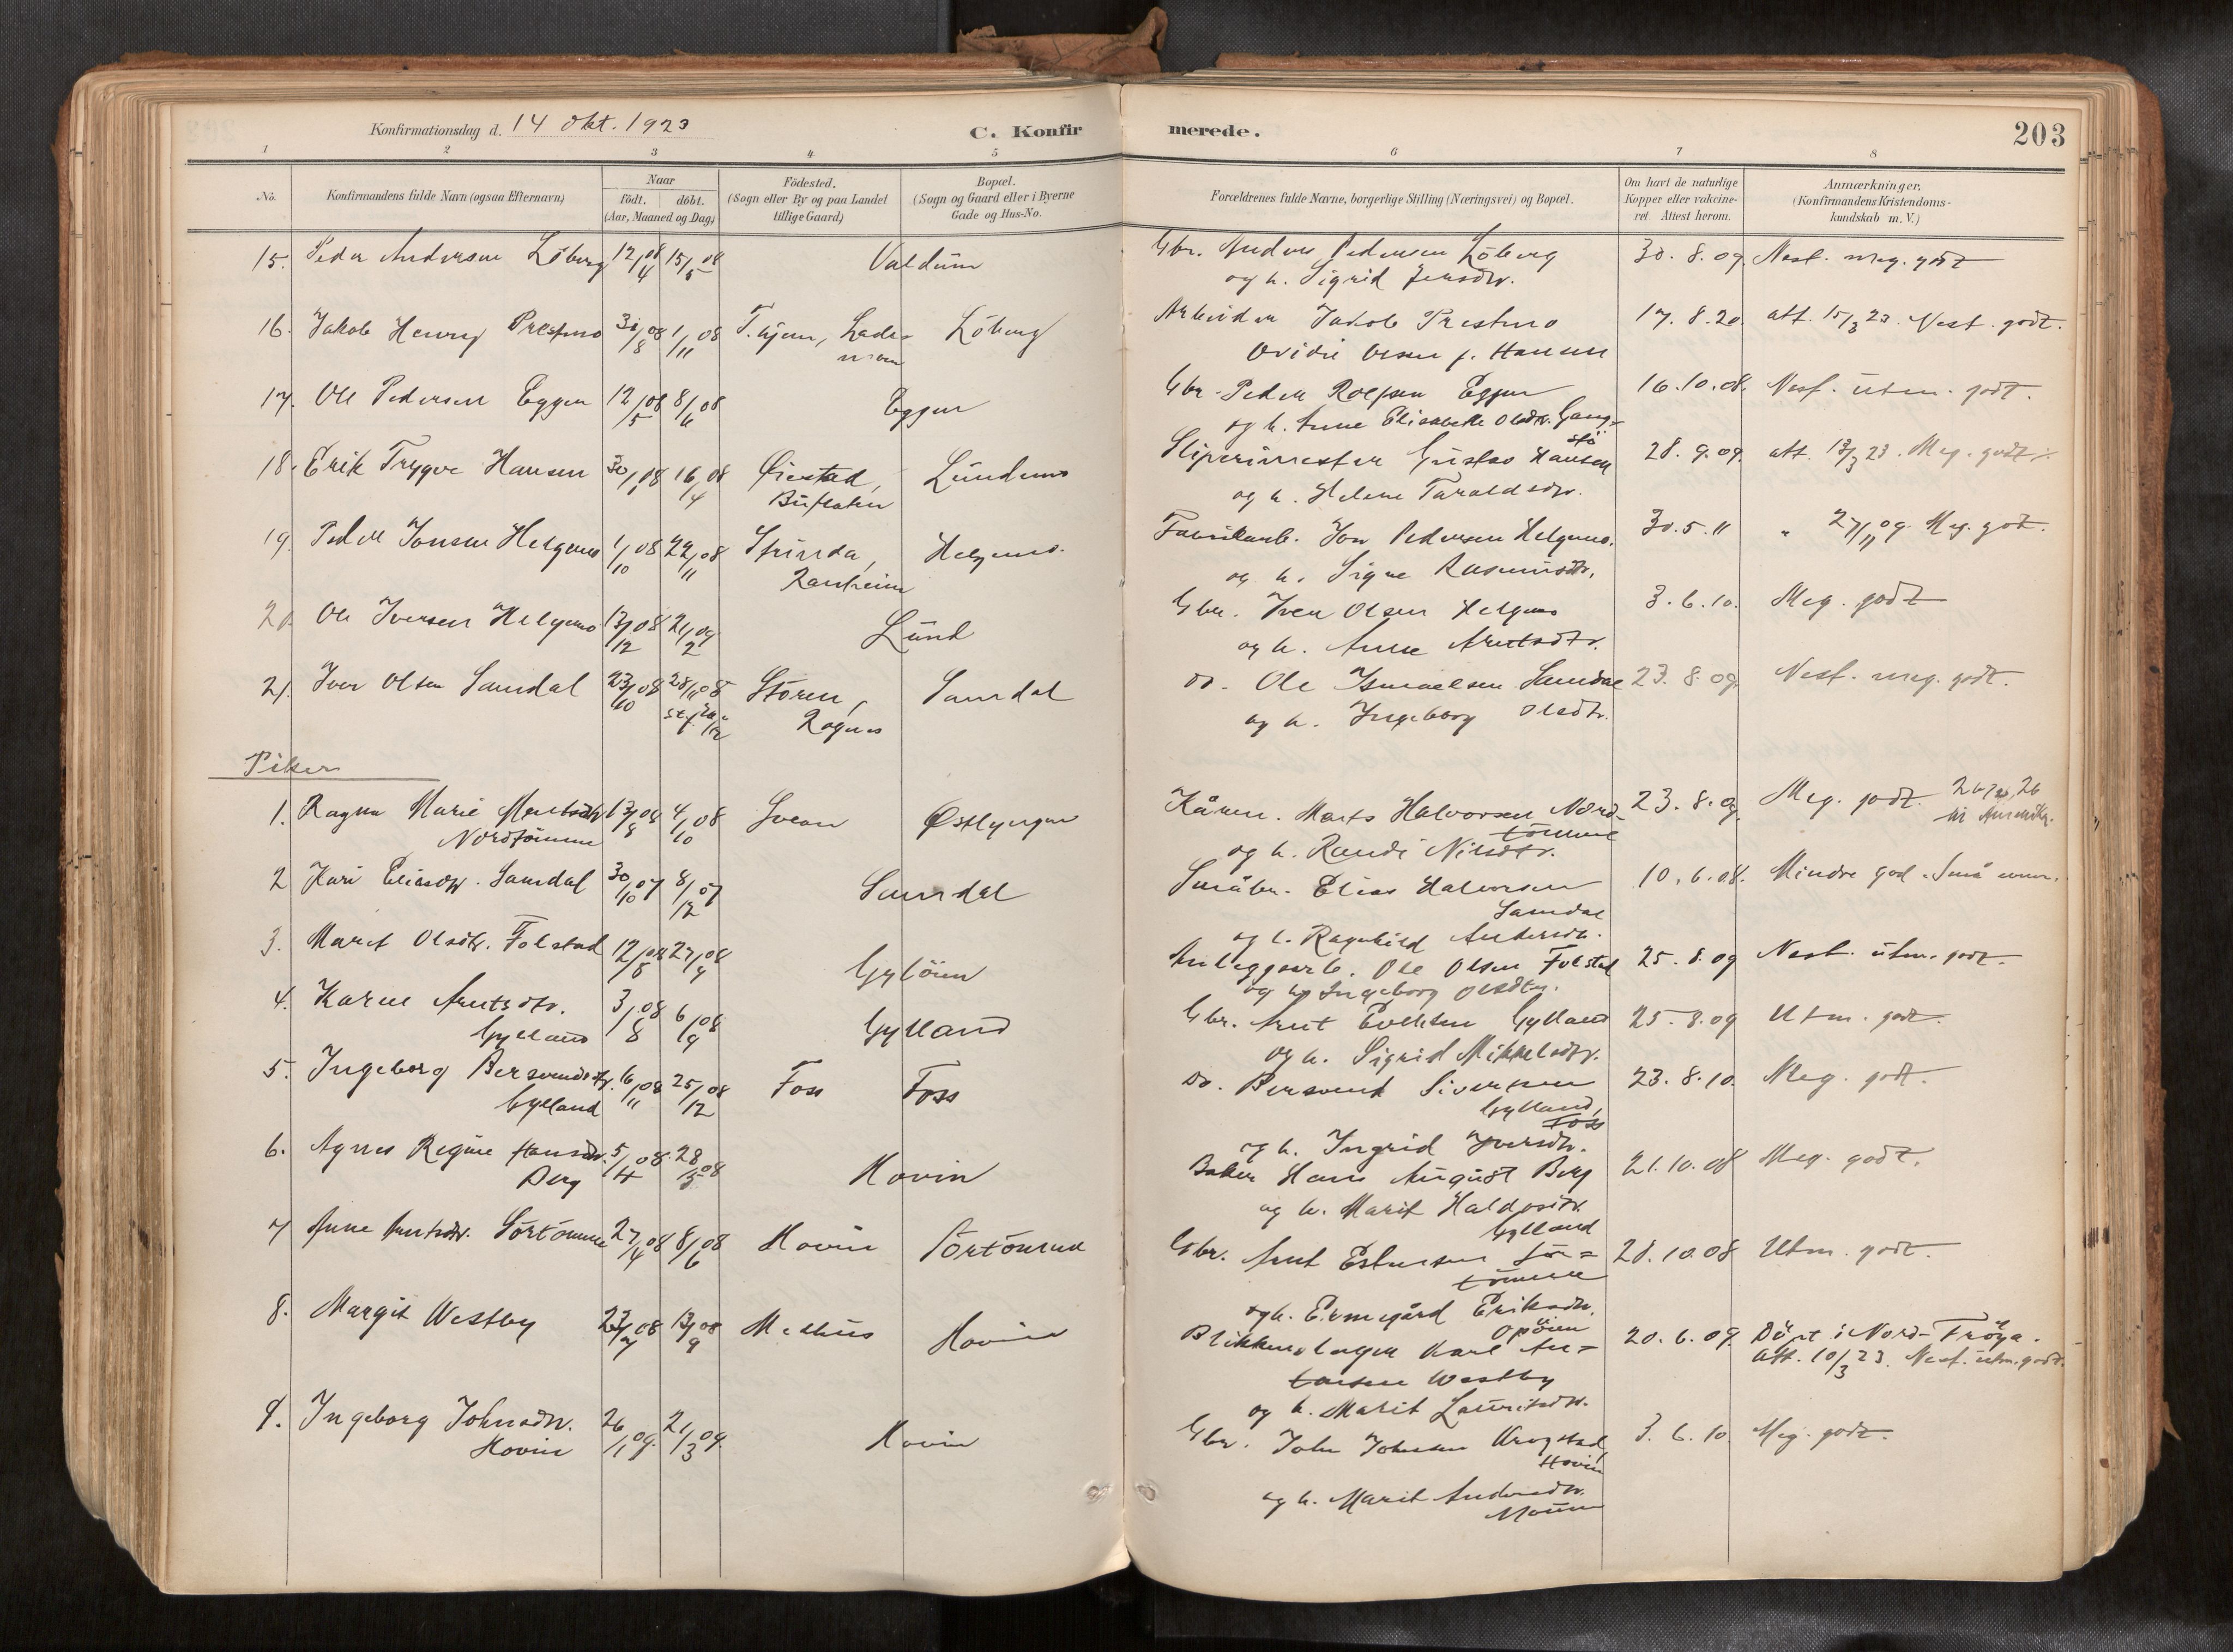 Konfirmationsdag d. 14 Okt. 1923
C. Konfirmerede.
203
1 2 3 4 5 6 7 8
No.
Konfirmandens fulde Navn (ogsaa Efternavn)
Naar
födt. döbt.
(Aar, Maaned og Dag)
Födested.
(Sogn eller By og paa Landet
tillige Gaard)
Bopæl.
(Sogn og Gaard eller i Byerne
Gade og Hus-No.
Forældrenes fulde Navne, borgerlige Stilling (Næringsvei) og Bopæl.
Om havt de naturlige
Kopper eller vakcine-
ret Attest herom.
Anmærkninger.
(Konfirmandens Kristendoms-
kundskab m. V.)
15. Peder Andersen Löberg 12/4 08 15/5 08 Valdum Gbr. Anders Pedersen Löberg 30. 8. 09. Nest. meg. godt
og h. Sigrid Jensdtr.
16. Jakob Henry Prestmo 31/8 08 1/11 08 T.hjem, Lade- Löberg Arbeider Jakob Prestmo 17. 8. 20. att. 15/3 23. Nest. godt.
moen Olsen f. Hansen
17. Ole Pedersen Eggen 12/5 08 8/6 08 Eggen Gbr. Peder Rolfsen Eggen 16. 10. 08. Nest. utm. godt.
og h. Anne Elisabeth Olsdtr. Gang-
stö
18. Erik Trygve Hansen 30/1 08 16/4 08 Öiestad, Lundemo Sliperimester Gustav Hansen 28. 9. 09. att. 13/3 23. Meg. godt
og h. Helene Taraldsdtr.
19. Peder Jonsen Helgemo 1/10 08 22/11 08 Strinda, Helgemo. Fabrikarb. Jon Pedersen Helgemo. 30. 5. 11 " 27/11 09. Meg. godt.
Ranheim og h. Signe Rasmusdtr.
20 Ole Iversen Helgemo 13/12 08 21/2 09 Lund Gbr. Iver Olsen Helgemo 3. 6. 10. Meg. godt
og h. Anne Arntsdtr.
21. Iver Olsen Samdal 23/10 08 28/11 08 Stören, Samdal do. Ole Ismaelsen Samdal 23. 8. 09. Nest. meg. godt.
Rognes og h. Ingeborg Olsdtr.
Piker
1. Ragna Marie Martsdtr 13/8 08 4/10 08 Svean Östlyngen Kårm. Marts Halvorsen Nord- 23. 8. 09. Meg. godt.
Nordtömme tömme
og h. Randi Nilsdtr. til Amerika.
2 Kari Eliasdtr. Samdal 30/10 07 8/12 07 Samdal Småbr. Elias Halvorsen 10. 6. 08. Mindre god. Små evner.
Samdal
og h. Ragnhild Andersdtr.
3. Marit Olsdtr. Folstad 12/8 08 27/9 08 Gylöien Anleggsarb. Ole Olsen Folstad 25. 8. 09 Nest. utm. godt.
og h. Ingeborg Olsdtr.
4. Karen Arntsdtr. 3/8 08 6/9 08 Gylland Gbr. Arnt Gylland 25. 8. 09 Utm. godt.
Gylland og h. Sigrid Mikkelsdtr.
5. Ingeborg Bersvendsdtr. 6/11 08 25/12 08 Foss Foss do. Bersvend Sivertsen 23. 8. 10. Meg. godt.
Gylland Gylland,
Foss
og h. Ingrid Iversdtr.
6. Agnes Regine Hansdtr. 5/4 08 28/5 08 Hovin Baker Hans August Berg 21. 10. 08 Meg. godt.
Berg og h. Marit Haldosdtr.
Gylland
7 Anne Arntsdtr. Sörtömme 27/4 08 8/6 08 Hovin Sörtömme Gbr. Arnt Estensen Sör- 28. 10. 08 Utm. godt.
tömme
og h. Ermegård Eriksdtr.
Opöien
8. Margit Westby 23/7 08 13/9 08 Melhus Hovin Blikkenslager Karl An- 20. 6. 09. Döpt i Nord-Fröya.
tonsen Westby att. 10/3 23. Nest. utm. godt.
og h. Marit Lauritsdtr.
9. Ingeborg Johnsdtr. 26/1 09. 21/3 09. Hovin Gbr. John Johnsen Krogstad, 3. 6. 10. Meg. godt.
Hovin Hovin
og h. Marit Andersdtr.
Moum